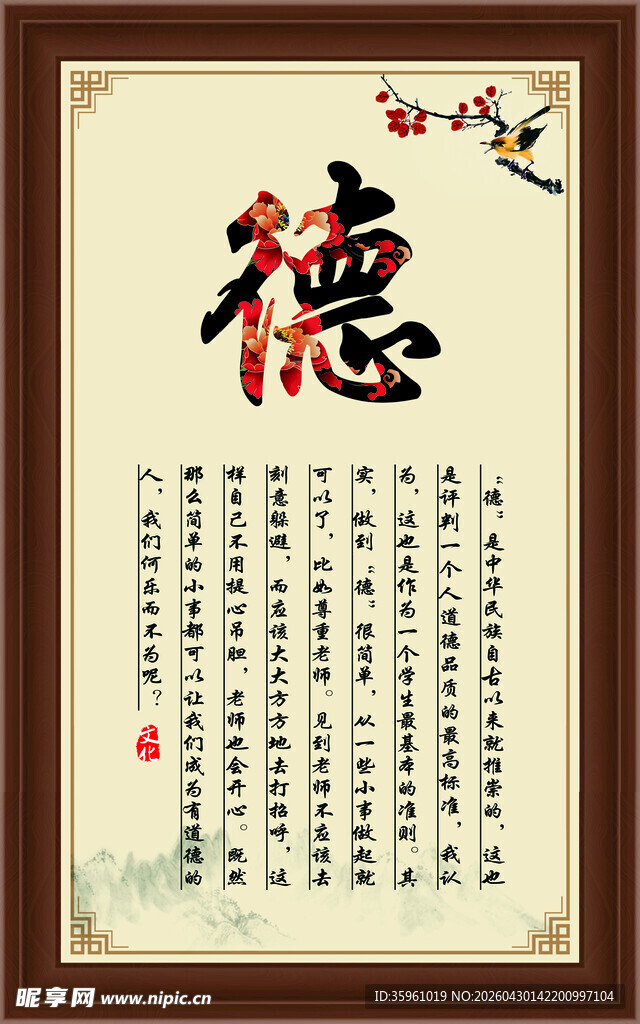 德
“德”是中华民族自古以来就推崇的，这也
是评判一个人道德品质的最高标准，我认
为，这也是作为一个学生最基本的准则。其
实，做到“德”很简单，从一些小事做起就
可以了，比如尊重老师。见到老师不应该去
刻意躲避，而应该大大方方地去打招呼，这
样自己不用提心吊胆，老师也会开心。既然
那么简单的小事都可以让我们成为有道德的
人，我们何乐而不为呢？
文化
昵享网 www.nipic.cn
ID:35961019 NO:20260430142200997104